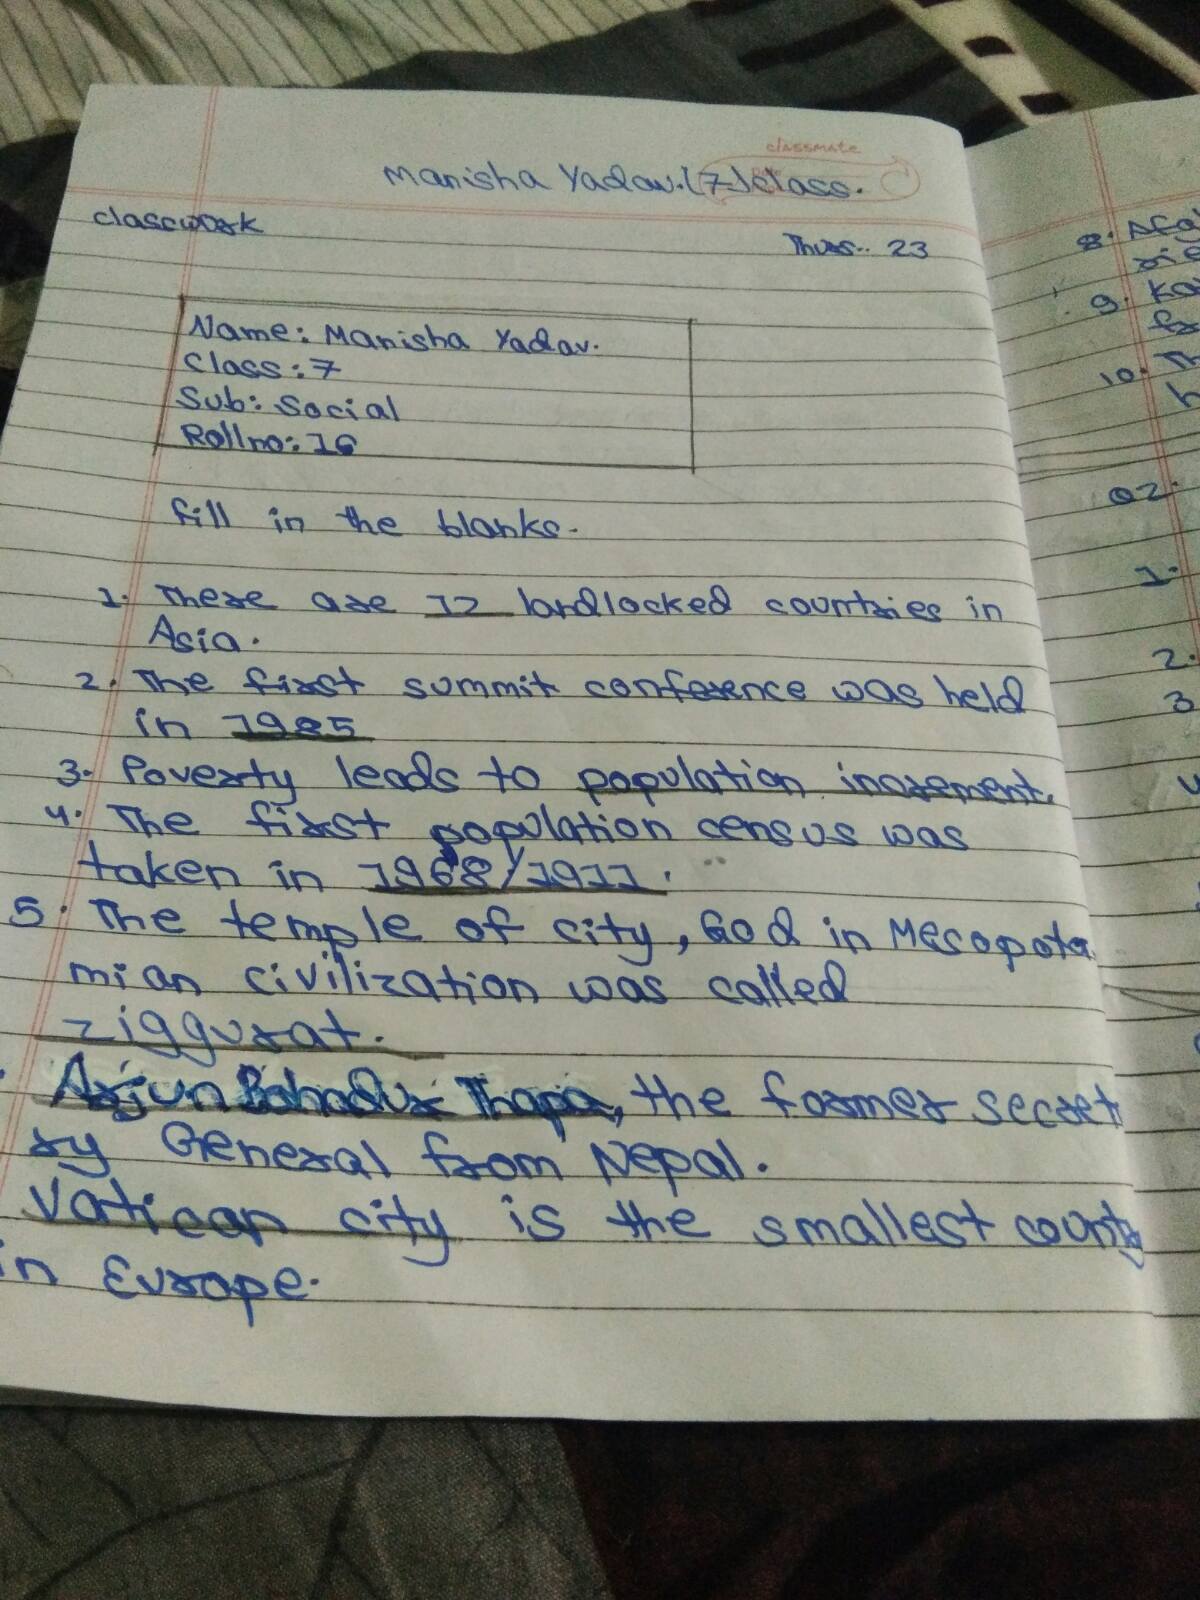 classmate
Manisha Yadav.(7)class.
classwork
Thurs.. 23
Name: Manisha Yadav.
Class: 7
Sub: Social
Roll no: 16
fill in the blanks.
1. There are 12 landlocked countries in
Asia.
2. The first summit conference was held
in 1985
3. Poverty leads to population increment.
4. The first population census was
taken in 1968/1911.
5. The temple of city, God in Mesopota
mian civilization was called
ziggurat.
Arjun Bahadur Thapa, the former secret
ry General from Nepal.
Vatican city is the smallest county
in Europe.
8. Afg
9. Ka
10. Th
Q2.
1.
2.
3